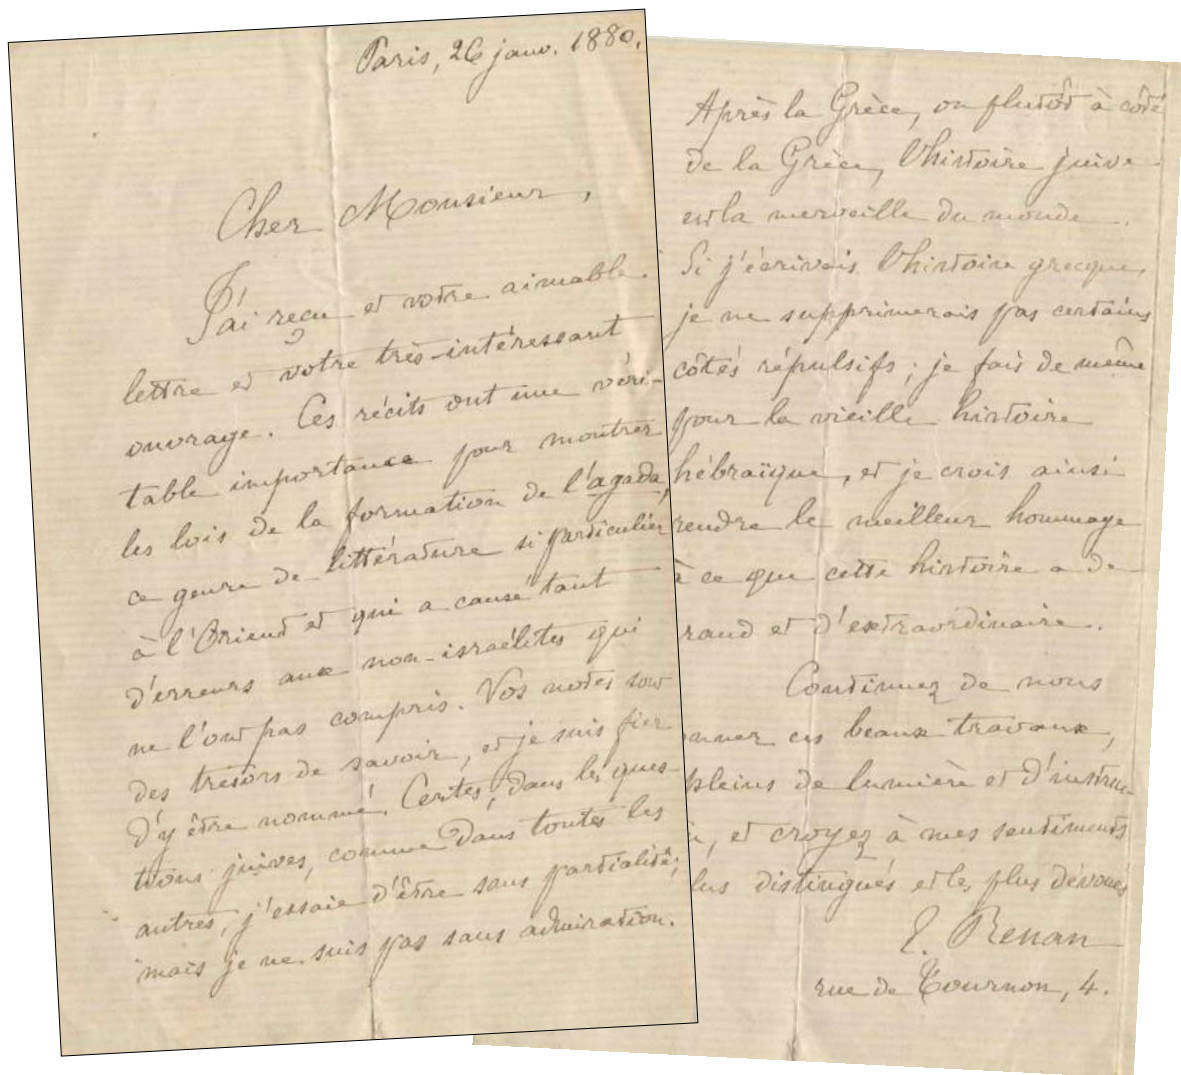 Paris, 26 janv. 1880.
Cher Monsieur,
J'ai reçu et votre aimable
lettre et votre très-intéressant
ouvrage. Ces récits ont une véri-
table importance pour montrer
les lois de la formation de l'agada,
ce genre de littérature si particulier
à l'Orient et qui a causé tant
d'erreurs aux non-israélites qui
ne l'ont pas compris. Vos notes sont
des trésors de savoir, et je suis fier
d'y être nommé. Certes, dans les ques-
tions juives, comme dans toutes les
autres, j'essaie d'être sans partialité;
mais je ne suis pas sans admiration.
Après la Grèce, ou plutôt à côté
de la Grèce, l'histoire juive
est la merveille du monde.
Si j'écrivais l'histoire grecque,
je ne supprimerais pas certains
côtés répulsifs; je fais de même
pour la vieille histoire
hébraïque, et je crois ainsi
rendre le meilleur hommage
à ce que cette histoire a de
rand et d'extraordinaire.
Continuez de nous
onner ces beaux travaux,
pleins de lumière et d'instruc-
, et croyez à mes sentiments
lus distingués et les plus dévoués
E. Renan
rue de Tournon, 4.